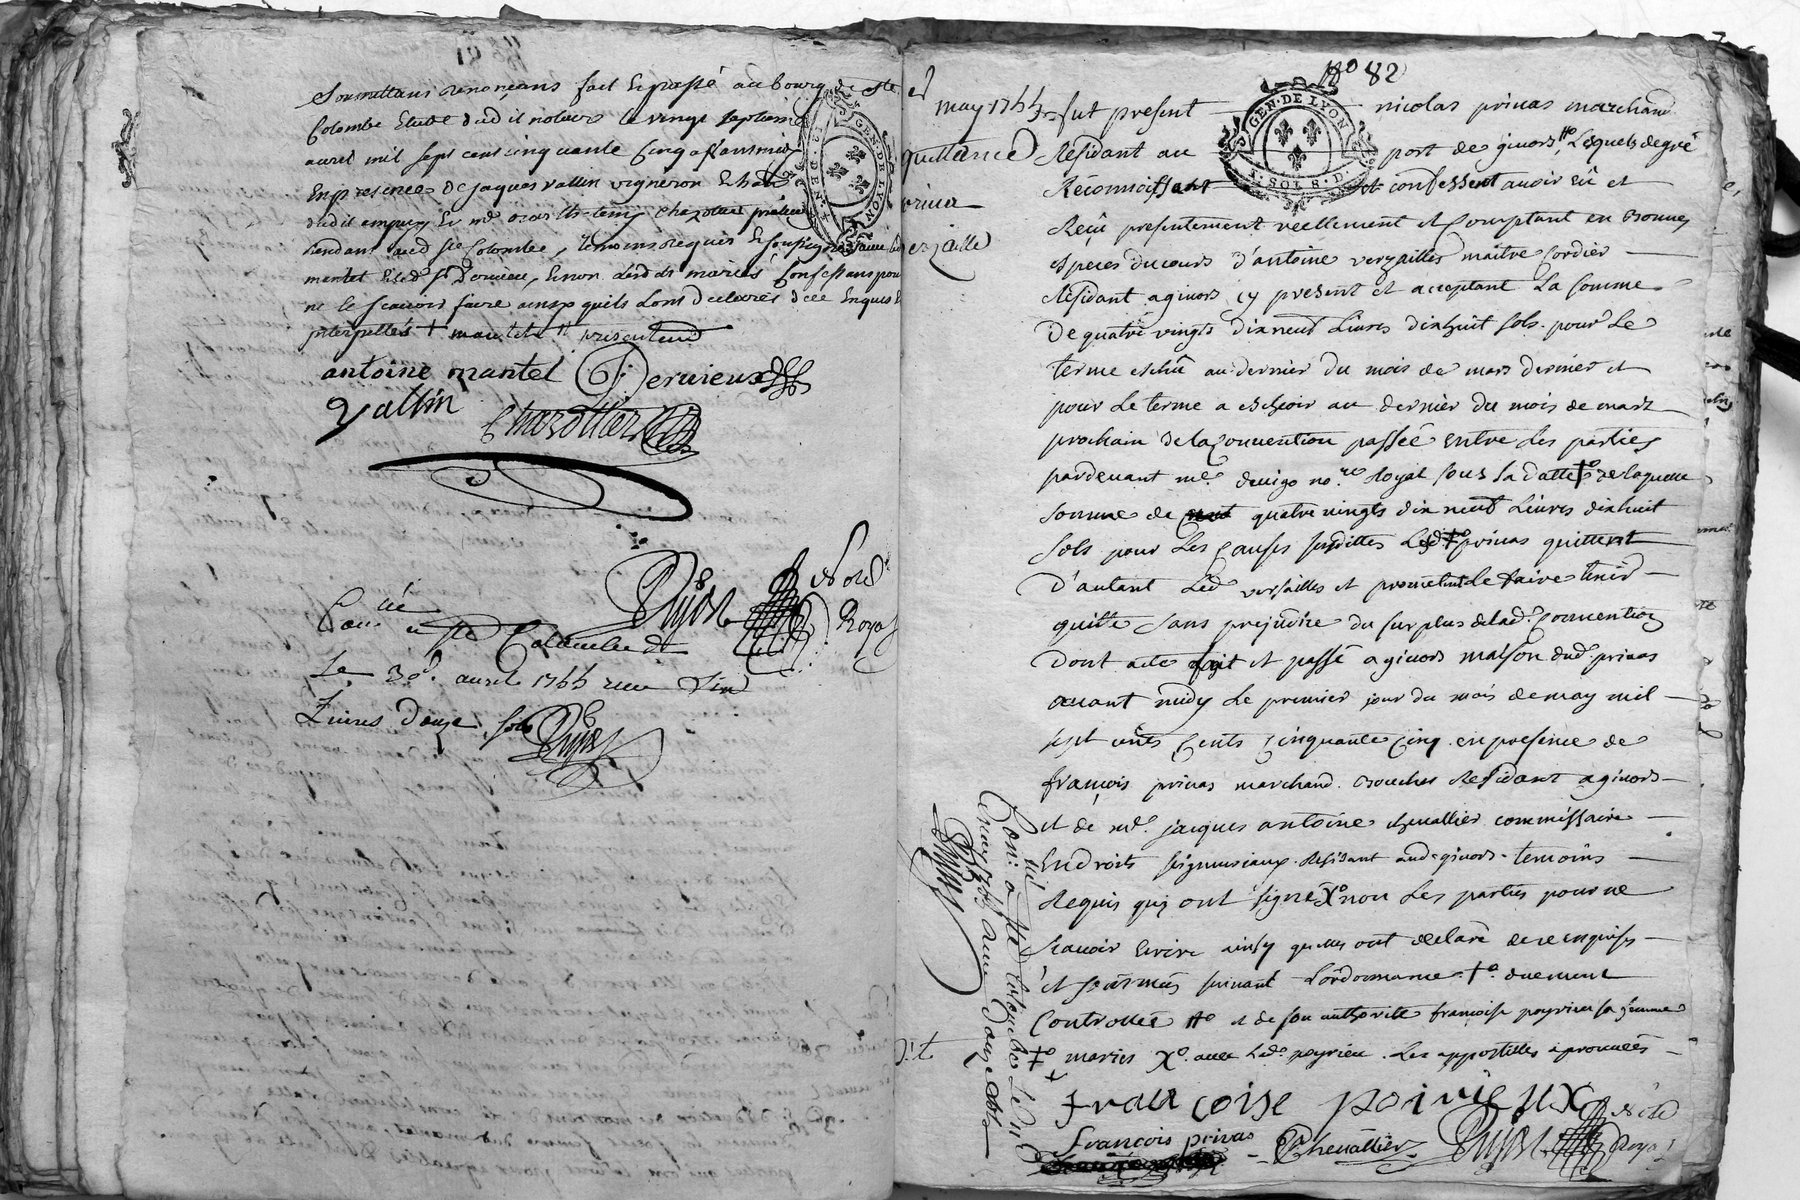 Soumettans Renonçans fait Et passé au bourg de Ste
Colombe Etude dud it notaire Le vingt septieme
avril mil sept cent cinquante Cinq
En presence de jaques vallin vigneron
Rendant aud Ste Colombe, temoins requis Et soussignes
mantel Et led Sr Dervieu, Et non lesd mariés Confessans pour
ne le scavoir faire ainsy quils L'ont declarés de ce Enquis E
interpellés
antoine mantel Dervieux
Vallin
Chazottier
Dujast Nore
Royal
Con lé a Ste Colombe
Le 30e. avril 1755 recu
Livres douze sols
Dujast
No 82
GEN. DE LYON
1. SOL 8. D.
may 1755
quittance
privas
verzaille
fut present nicolas privas marchand
Résidant au port de givors No Lesquels de gré
Reconnoissant et confessent avoir Eü et
Reçu présentement reellement et Comptant en bonnes
Especes du cours d'antoine verzailles maitre Cordier
Résidant a givors cy présent et acceptant La somme
De quatre vingts dix neuf Livres dixhuit sols pour Le
terme eschû au dernier du mois de mars dernier et
pour Le terme a escheoir au dernier du mois de mars
prochain de la Convention passée entre Les parties
pardevant me. devigo nore. Royal sous sa datte +o de laquelle
somme de quatre vingts dix neuf Livres dixhuit
sols pour Les Causes susdittes Led +o privas quittent
D'autant Led versailles et promettent Le faire tenir
quitte sans prejudice du surplus de lad. Convention
Dont acte fait et passé a givors maison dud. privas
avant midy Le premier jour du mois de may mil
sept cents Cinquante Cinq. en présence de
françois privas marchand Boucher Résidant a givors
et de me. jacques antoine chevallier commissaire
En droits seigneuriaux Résidant aud. givors temoins
Requis quy ont signé Xo non Les parties pour ne
scavoir Ecrire ainsy quelles ont déclaré de ce enquises
et sommés suivant L'ordonnance +o duement
Controllée No et de son authorité françoise peyrieu sa femme
+o mariés Xo avec Lad. peyrieu. Les appostilles aprouvées
françoise poirieux
François privas Chevallier Dujast Nore
Royal
Con. lé a Ste Colombe Le
may 1755 recu douze sols
Dujast